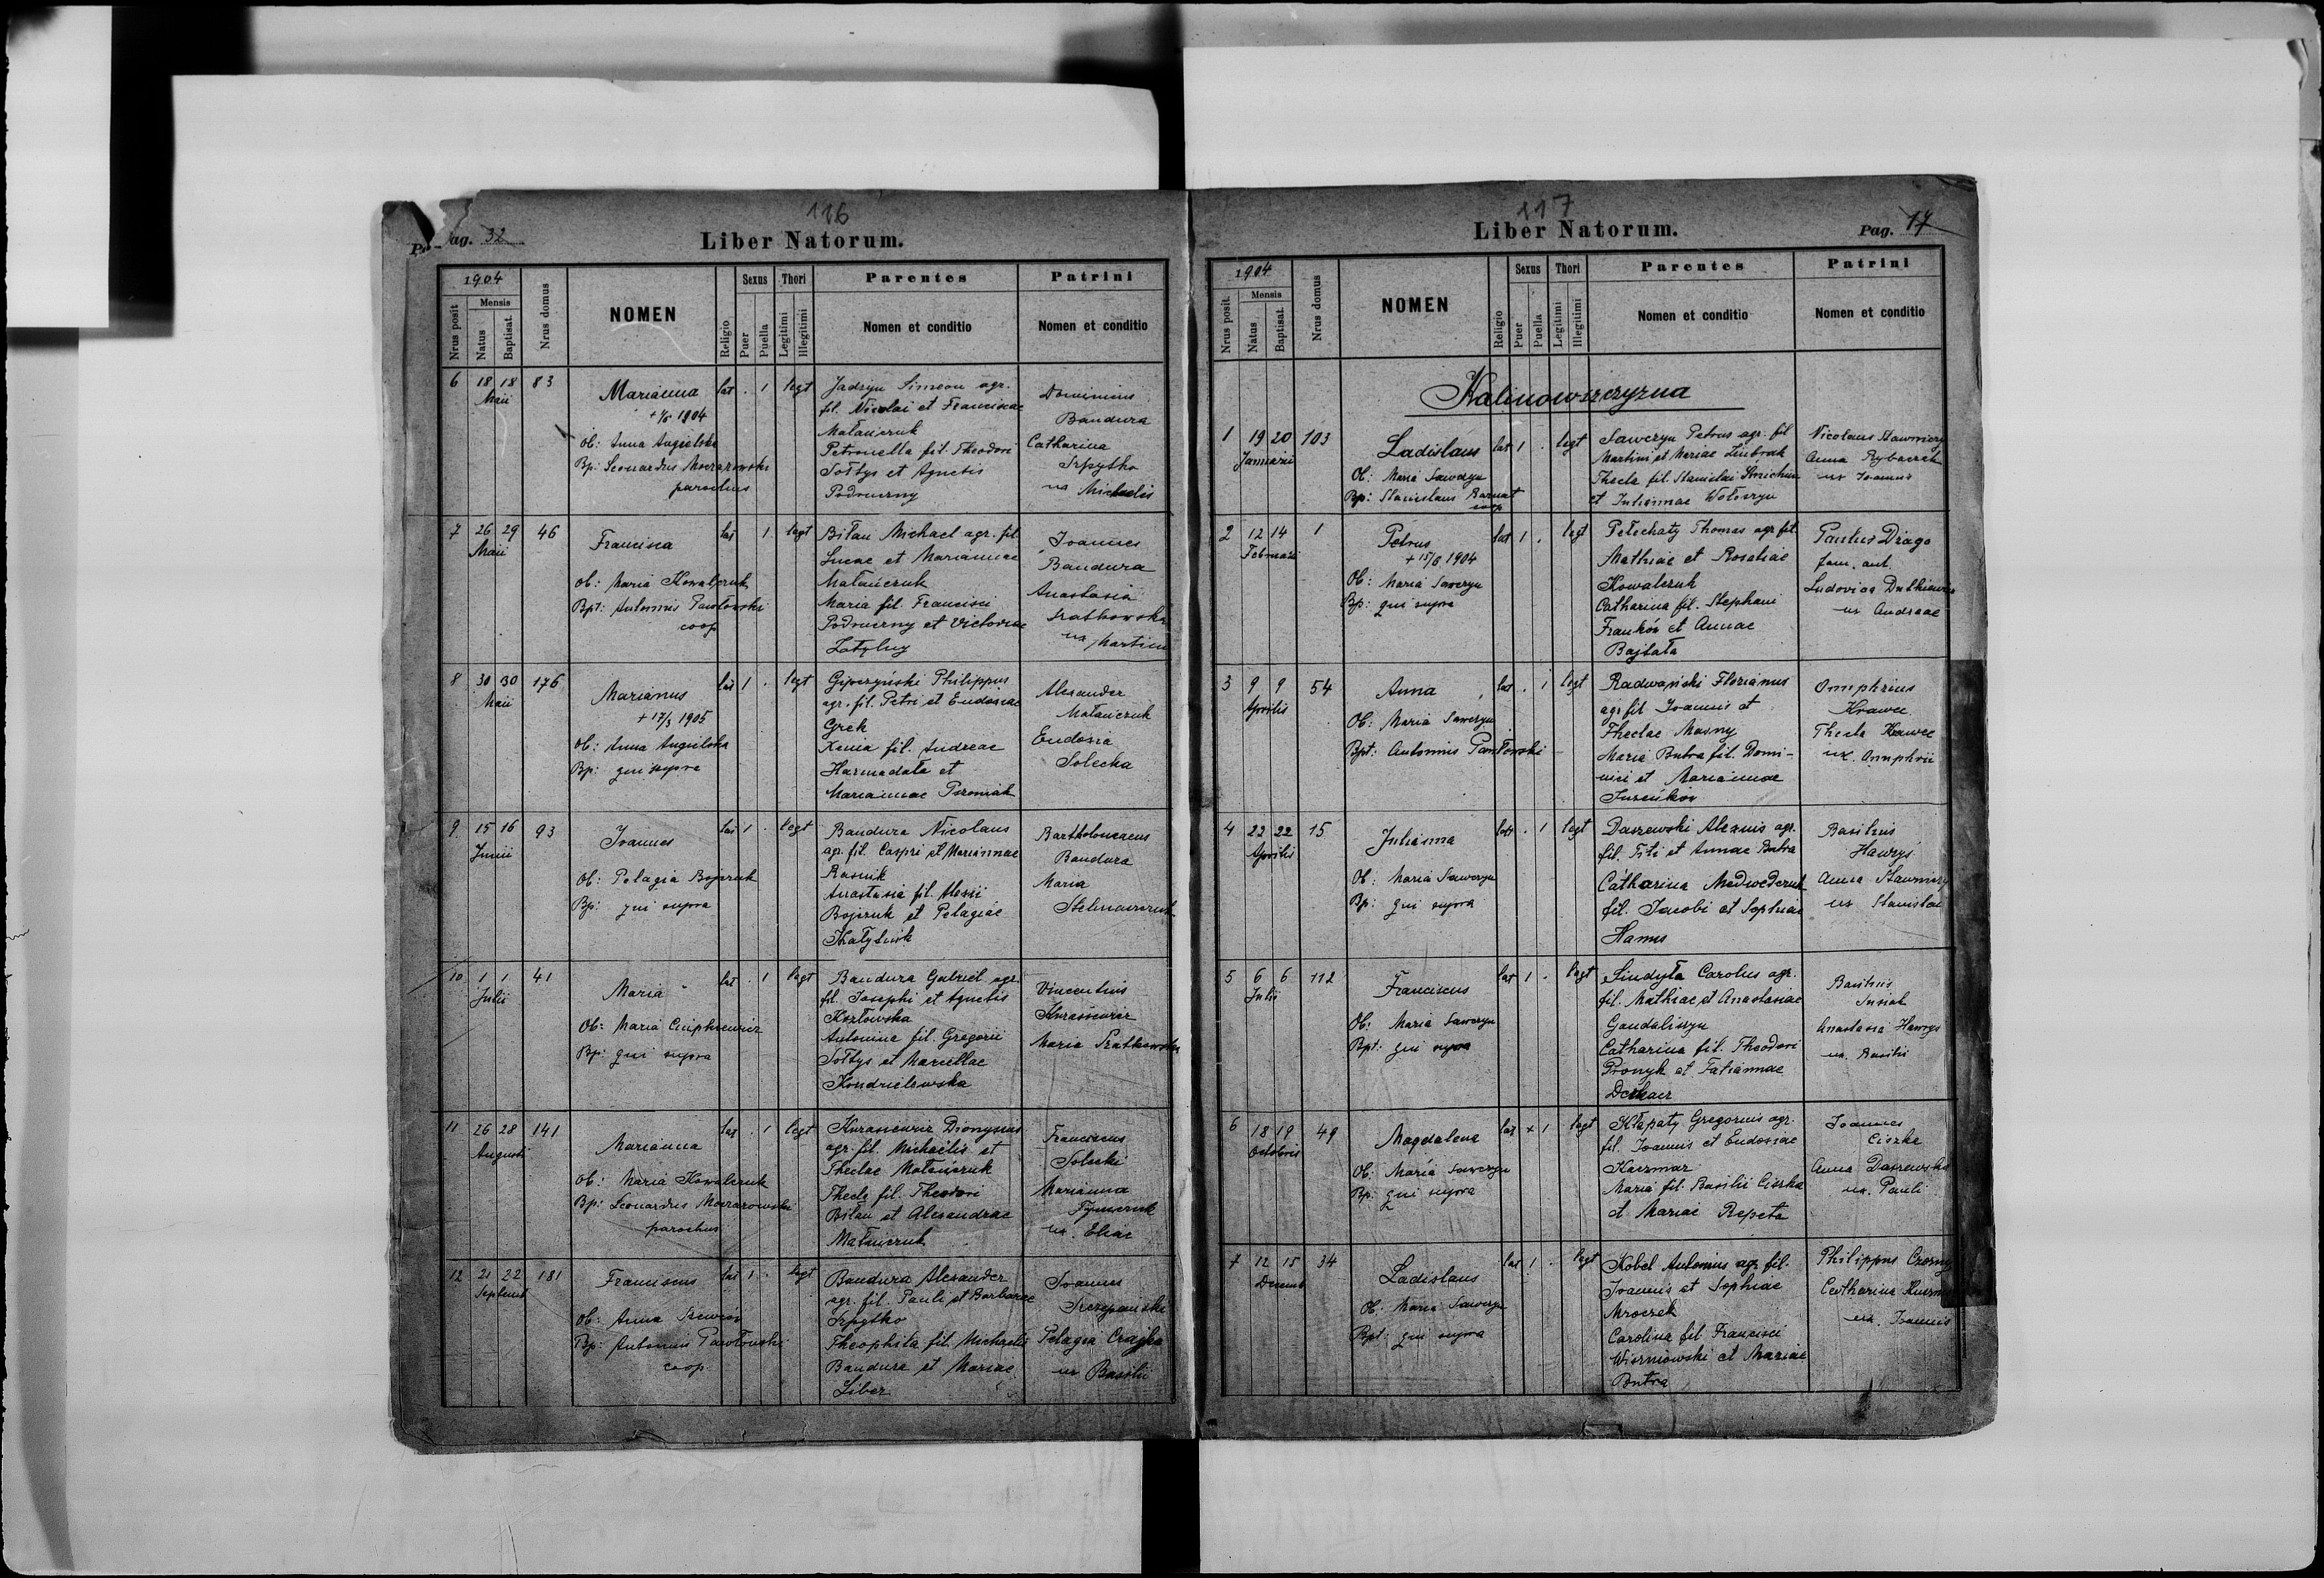 116
Pag. 32
Liber Natorum.
1904
Nrus posit
Mensis
Natus
Baptisat.
Nrus domus
NOMEN
Religio
Sexus
Puer
Puella
Thori
Legitimi
Illegitimi
Parentes
Nomen et conditio
Patrini
Nomen et conditio
6 18 18 83
Maii
Marianna
1904
Ob: Anna Angielska
Bp: Leonardus Moczarowski
parochus
lat . 1 legt
Jadzyn Simeon agr.
fil. Nicolai et Franciscae
Matańczuk
Petronella fil. Theodori
Sołtys et Agnetis
Podruczny
Dominicus
Bandura
Catharina
Szpytko
ux Michaelis
7 26 29 46
Maii
Francisca
Ob: Maria Kowalczuk
Bpt: Antonius Pawłowski
coop
lat 1 legt
Biłan Michael agr. fil
Lucae et Mariannae
Matańczuk
Maria fil. Francisci
Podruczny et Victoriae
Joannes
Bandura
Anastasia
ux Martini
8 30 30 176
Maii
Marianus
+ 17/3 1905
Ob: Anna Angielska
Bp: qui supra
lat 1 . legt
Philippus
agr. fil. Petri et Eudosiae
Grek
Xenia fil. Andreae
Harmadała et
Mariannae
Alexander
Matańczuk
Eudosia
Solecka
9 15 16 93
Junii
Joannes
Ob: Pelagia Bojczuk
Bp: qui supra
lat 1 . legt
Bandura Nicolaus
agr. fil. Caspri et Mariannae
Anastasia fil. Alexii
Bojczuk et Pelagiae
Bartholomaeus
Bandura
Maria
10 1 1 41
Julii
Maria
Ob: Maria
Bp: qui supra
lat . 1 legt
Bandura Gabriel agr.
fil. Josephi et Agnetis
Kozłowska
Antonina fil. Gregorii
Sołtys et Marcellae
Vincentius
Kurassewicz
Maria
11 26 28 141
Augusti
Marianna
Ob: Maria Kowalczuk
Bp: Leonardus Moczarowski
parochus
lat . 1 legt
Kurassewicz Dionysius
agr. fil. Michaelis et
Theclae Matańczuk
Thecla fil. Theodori
Biłan et Alexandrae
Matańczuk
Franciscus
Solecki
Marianna
ux. Eliae
12 21 22 181
Septemb
Franciscus
Ob: Anna
Bp: Antonius Pawłowski
coop.
lat 1 . legt
Bandura Alexander
agr. fil. Pauli et Barbarae
Szpytko
Theophila fil. Michaelis
Bandura et Mariae
Liber
Joannes
Szczepański
Pelagia Czajka
ux Basilii
117
Liber Natorum.
Pag. 17
1904
Nrus posit.
Mensis
Natus
Baptisat.
Nrus domus
NOMEN
Religio
Sexus
Puer
Puella
Thori
Legitimi
Illegitimi
Parentes
Nomen et conditio
Patrini
Nomen et conditio
Kalinowszczyzna
1 19 20 103
Januarii
Ladislaus
Ob: Maria Sawczyn
Bp: Stanislaus Barnat
coop
lat 1 . legt
Sawczyn Petrus agr. fil
Martini et Mariae
Thecla fil. Stanislai
et Juliannae Wołoszyn
Nicolaus
Anna Rybaczek
ux Joannis
2 12 14 1
Februarii
Petrus
+ 15/6 1904
Ob: Maria Sawczyn
Bp: qui supra
lat 1 . legt
Pełechaty Thomas agr fil.
Mathiae et Rosaliae
Kowalczuk
Catharina fil. Stephani
Franków et Annae
Bajtała
Paulus Drago
fam. aul.
Ludovica Dutkiewicz
ux Andreae
3 9 9 54
Aprilis
Anna
Ob: Maria Sawczyn
Bpt: Antonius Pawłowski
lat . 1 legt
Radwański Florianus
agr fil Joannis et
Theclae Masny
Maria Butra fil. Domi-
nici et Mariannae
Onuphrius
Krawec
Thecla Krawec
ux. Onuphrii
4 22 22 15
Aprilis
Julianna
Ob: Maria Sawczyn
Bp: qui supra
lat . 1 legt
Daszewski Alexius agr.
fil. Titi et Annae Butra
Catharina Medwedczuk
fil. Jacobi et Sophiae
Hamus
Basilius
Hawrys
Anna
ux Stanislai
5 6 6 112
Julii
Franciscus
Ob: Maria Sawczyn
Bpt: qui supra
lat 1 . legt
Carolus agr.
fil. Mathiae et Anastasiae
Catharina fil. Theodori
Pronyk et Tatiannae
Basilius
Anastasia Hawrys
ux. Basilii
6 18 19 49
Octobris
Magdalena
Ob: Maria Sawczyn
Bp: qui supra
lat + 1 legt
Kłapaty Gregorius agr.
fil. Joannis et Eudosiae
Kaczmar
Maria fil. Basilii Ciszka
et Mariae Repeta
Joannes
Ciszka
Anna Daszewska
ux. Pauli
7 12 15 34
Decemb
Ladislaus
Ob: Maria Sawczyn
Bpt: qui supra
lat 1 . legt
Kobel Antonius agr fil.
Joannis et Sophiae
Mroczek
Carolina fil Francisci
Wiszniowski et Mariae
Butra
Philippus Czorny
Catharina
ux. Joannis